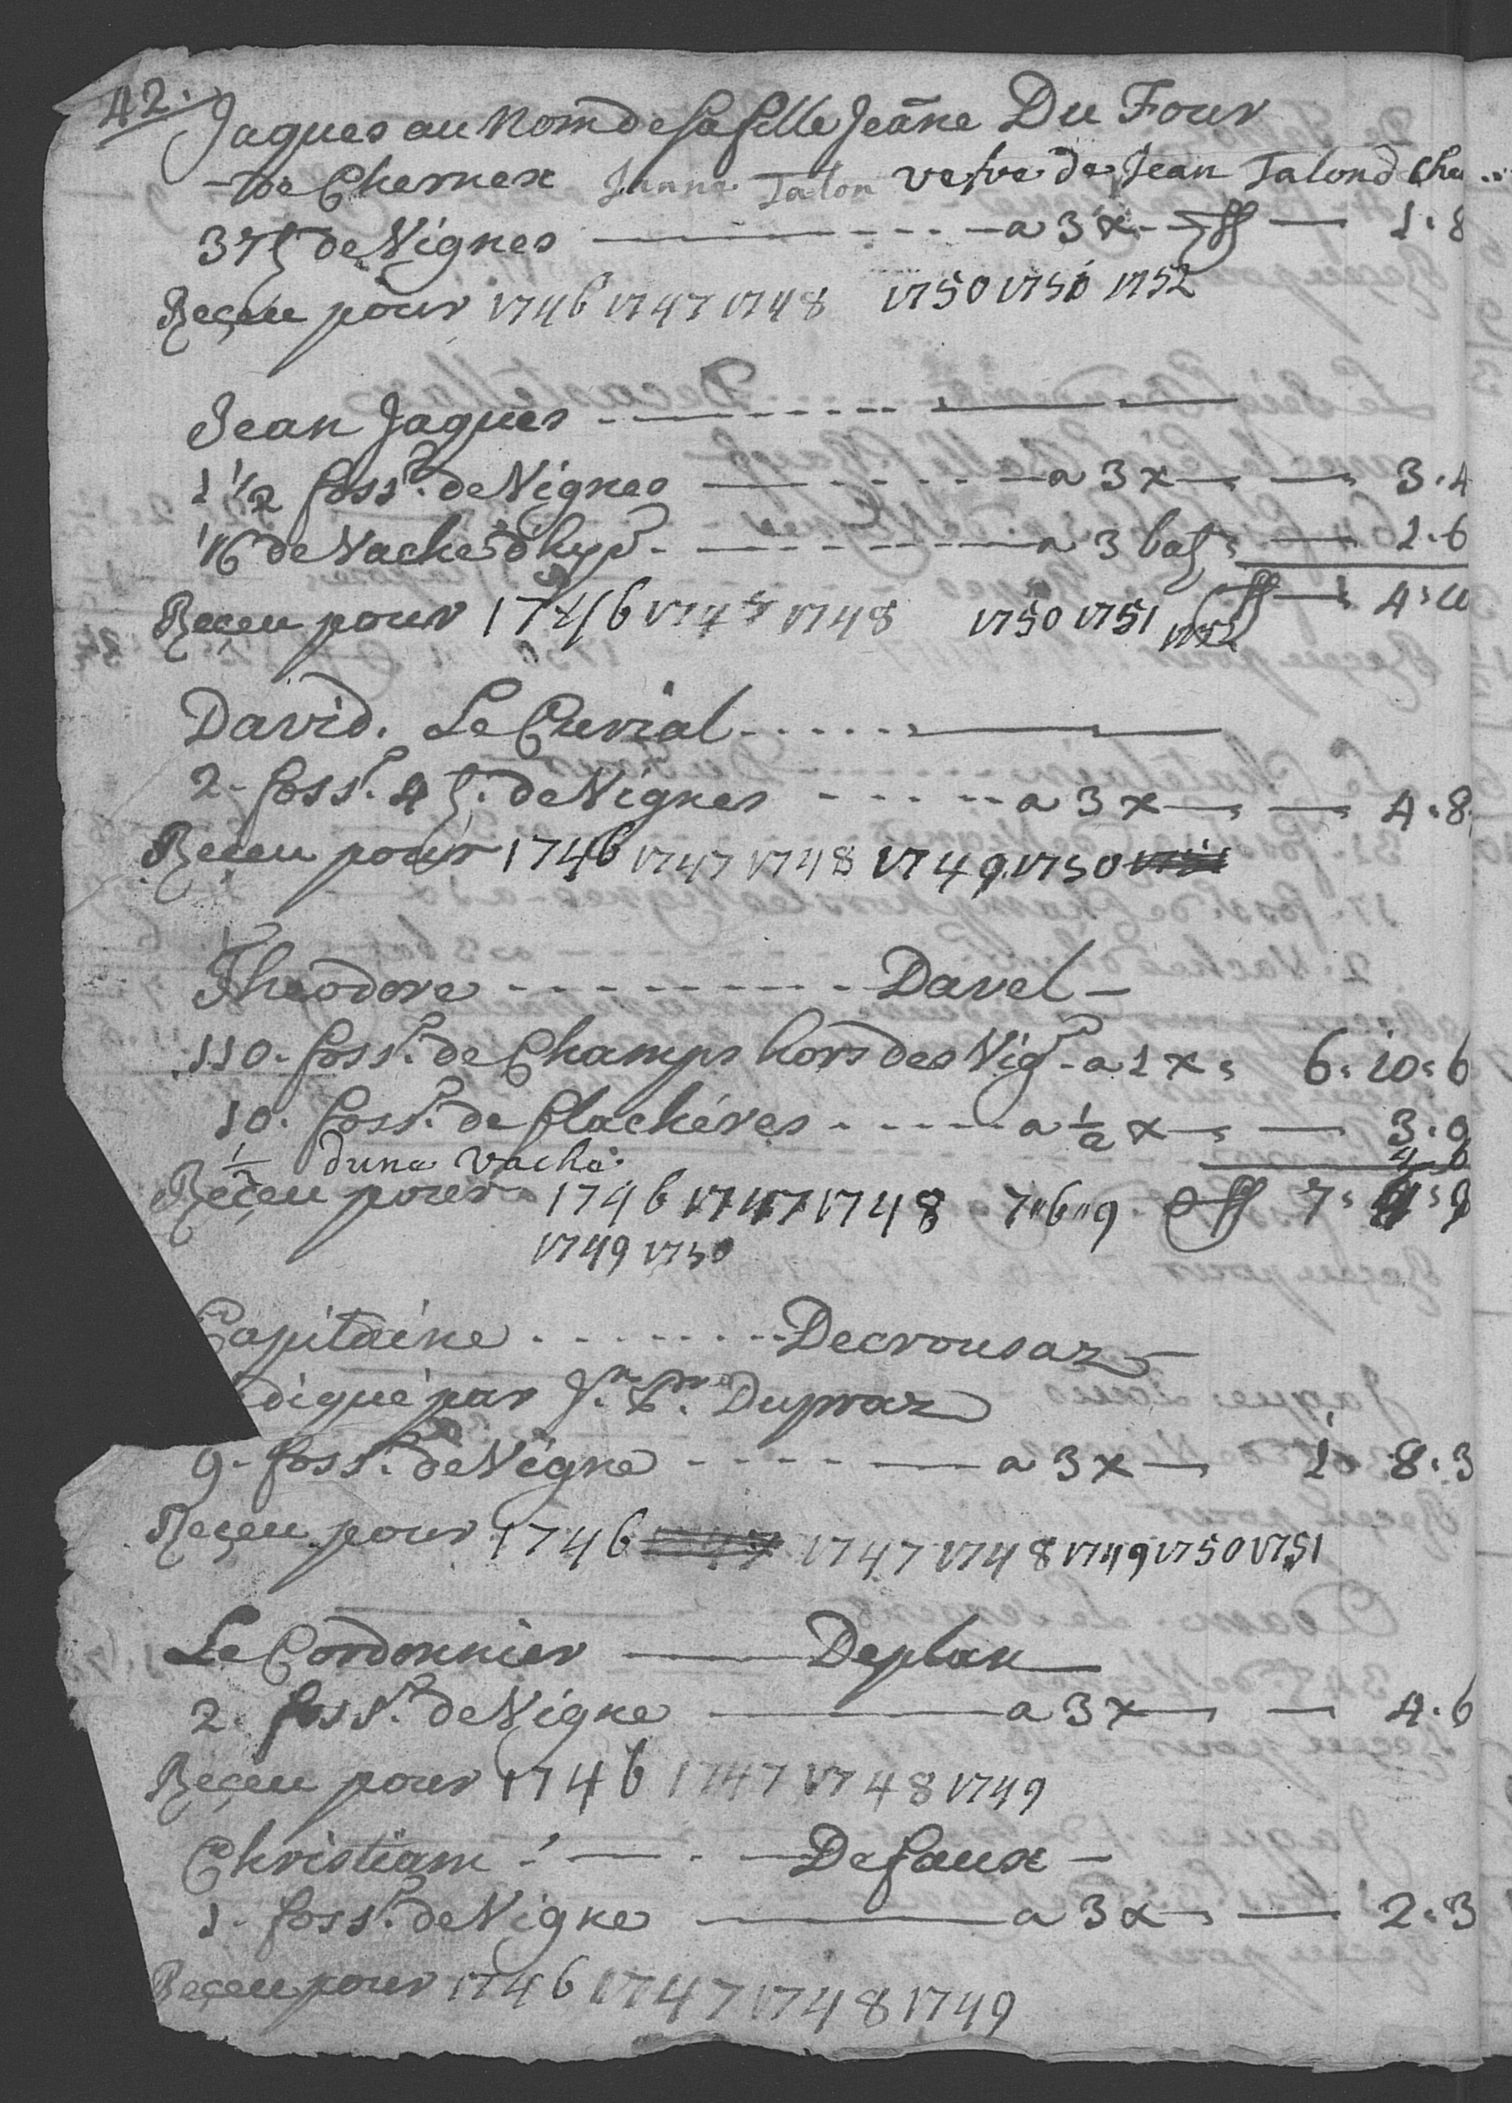 42.
Jaques au Nom de sa fille Jeane Du Four
De Chernex Janne Talon vefve de Jean Talon d Che
37 de Vignes a 3 x ff 1.8
Reçeu pour 1746 1747 1748 1750 1751 1752
Jean Jaques
1 1/2 foss.r de Vignes a 3 x 3.4
1/6 de Vache dhyp a 3 batz 1.6
Reçeu pour 1746 1747 1748 1750 1751 1752 ff 4.10
David. Le Curial
2. foss.r 4 de Vignes a 3 x 4.8
Reçeu pour 1746 1747 1748 1749 1750 1751
Theodore Davel
110. foss.r de Champs hors des Vig. a 1 x 6. 10. 6
10. foss.r de flachéres a 1/2 x 3.9
1/2 dune vache 4 6
Reçeu pour 1746 1747 1748 7"6"9 ff 7.
1749 1750
Capitaine Decrousaz
diqué par J.n P.re Dupraz
9. foss.r de Vigne a 3 x 1. 8. 3
Reçeu pour 1746 1747 1747 1748 1749 1750 1751
Le Cordonnier Deplan
2. foss.r de Vigne a 3 x 4.6
Reçeu pour 1746 1747 1748 1749
Christiam Defaux
1. foss.r de Vigne a 3 x 2.3
Reçeu pour 1746 1747 1748 1749